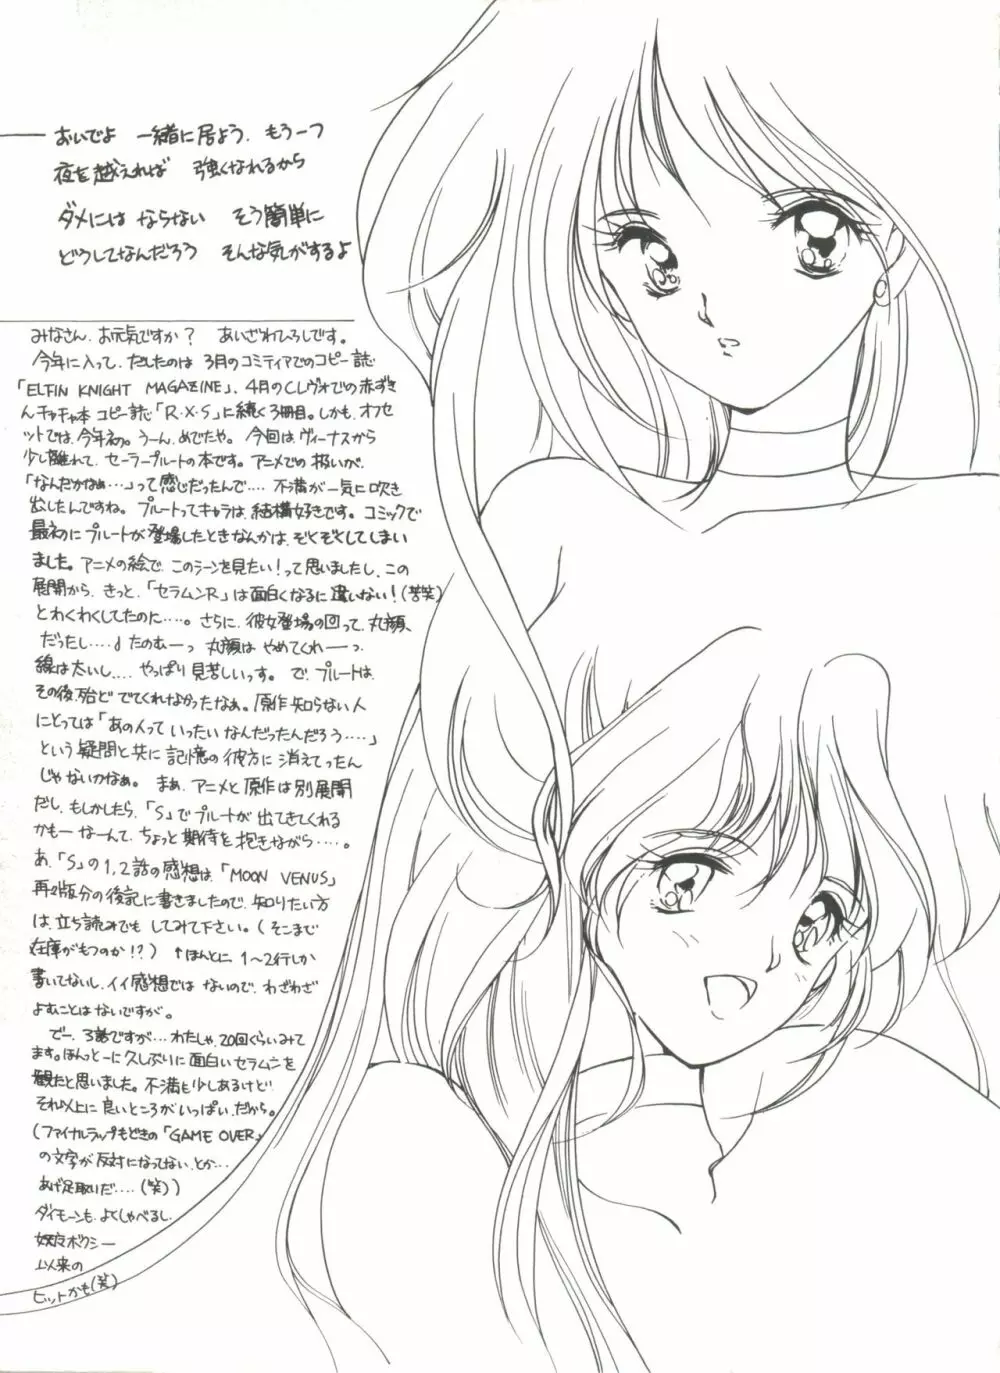 おいでよ 一緒に居よう. もう一つ
夜を越えれば 強くなれるから
ダメには ならない そう簡単に
どうしてなんだろう そんな気がするよ
みなさん、お元気ですか? あいざわひろしです。
今年に入って、だしたのは 3月のコミティアでのコピー誌
「ELFIN KNIGHT MAGAZINE」、4月のCレヴォでの赤ずき
んチャチャ本 コピー誌「R・X・S」に続く3冊目。しかも、オフセ
ットでは、今年初。うーん、めでたや。今回は、ヴィーナスから
少し離れて、セーラープルートの本です。アニメでの扱いが、
「なんだかなぁ…」って感じだったんで…. 不満が一気に吹き
出したんですね。プルートってキャラは、結構好きです。コミックで
最初にプルートが登場したときなんかは、ぞくぞくとしてしまい
ました。アニメの絵で、このシーンを見たい!って思いましたし、この
展開から、きっと、「セラムンR」は面白くなるに違いない!(苦笑)
とわくわくしてたのに….。さらに、彼女登場の回って、丸顔、
だったし….♩たのむーっ 丸顔は やめてくれーっ、
線は太いし…. やっぱり見苦しいっす。で、プルートは、
その後、殆ど でてくれなかったなぁ。原作知らない人
にとっては「あの人って いったい なんだったんだろう….」
という疑問と共に 記憶の彼方に 消えてったん
じゃないのかなぁ。まぁ、アニメと原作は別展開
だし、もしかしたら、「S」でプルートが出てきてくれる
かもー なーんて、ちょっと期待を抱きながら….。
あ、「S」の1,2話の感想は、「MOON VENUS」
再々版分の後記に書きましたので、知りたい方
は、立ち読みでも してみて下さい。(そこまで
在庫がもつのか!?) ↑ほんとに、1〜2行しか
書いてないし、イイ感想では ないので、わざわざ
よむことはないですが。
でー、3話ですが…わたしゃ、20回くらいみて
ます。ほんっとーに久しぶりに 面白いセラムンを
観たと思いました。不満も少しあるけど
それ以上に良いところがいっぱい、だから。
(ファイナルラップもどきの「GAME OVER」
の文字が反対になってない、とか…
あげ足取りだ….(笑))
ダイモーンも、よくしゃべるし、
妖魔ボクシー
以来の
ヒットかも(笑)